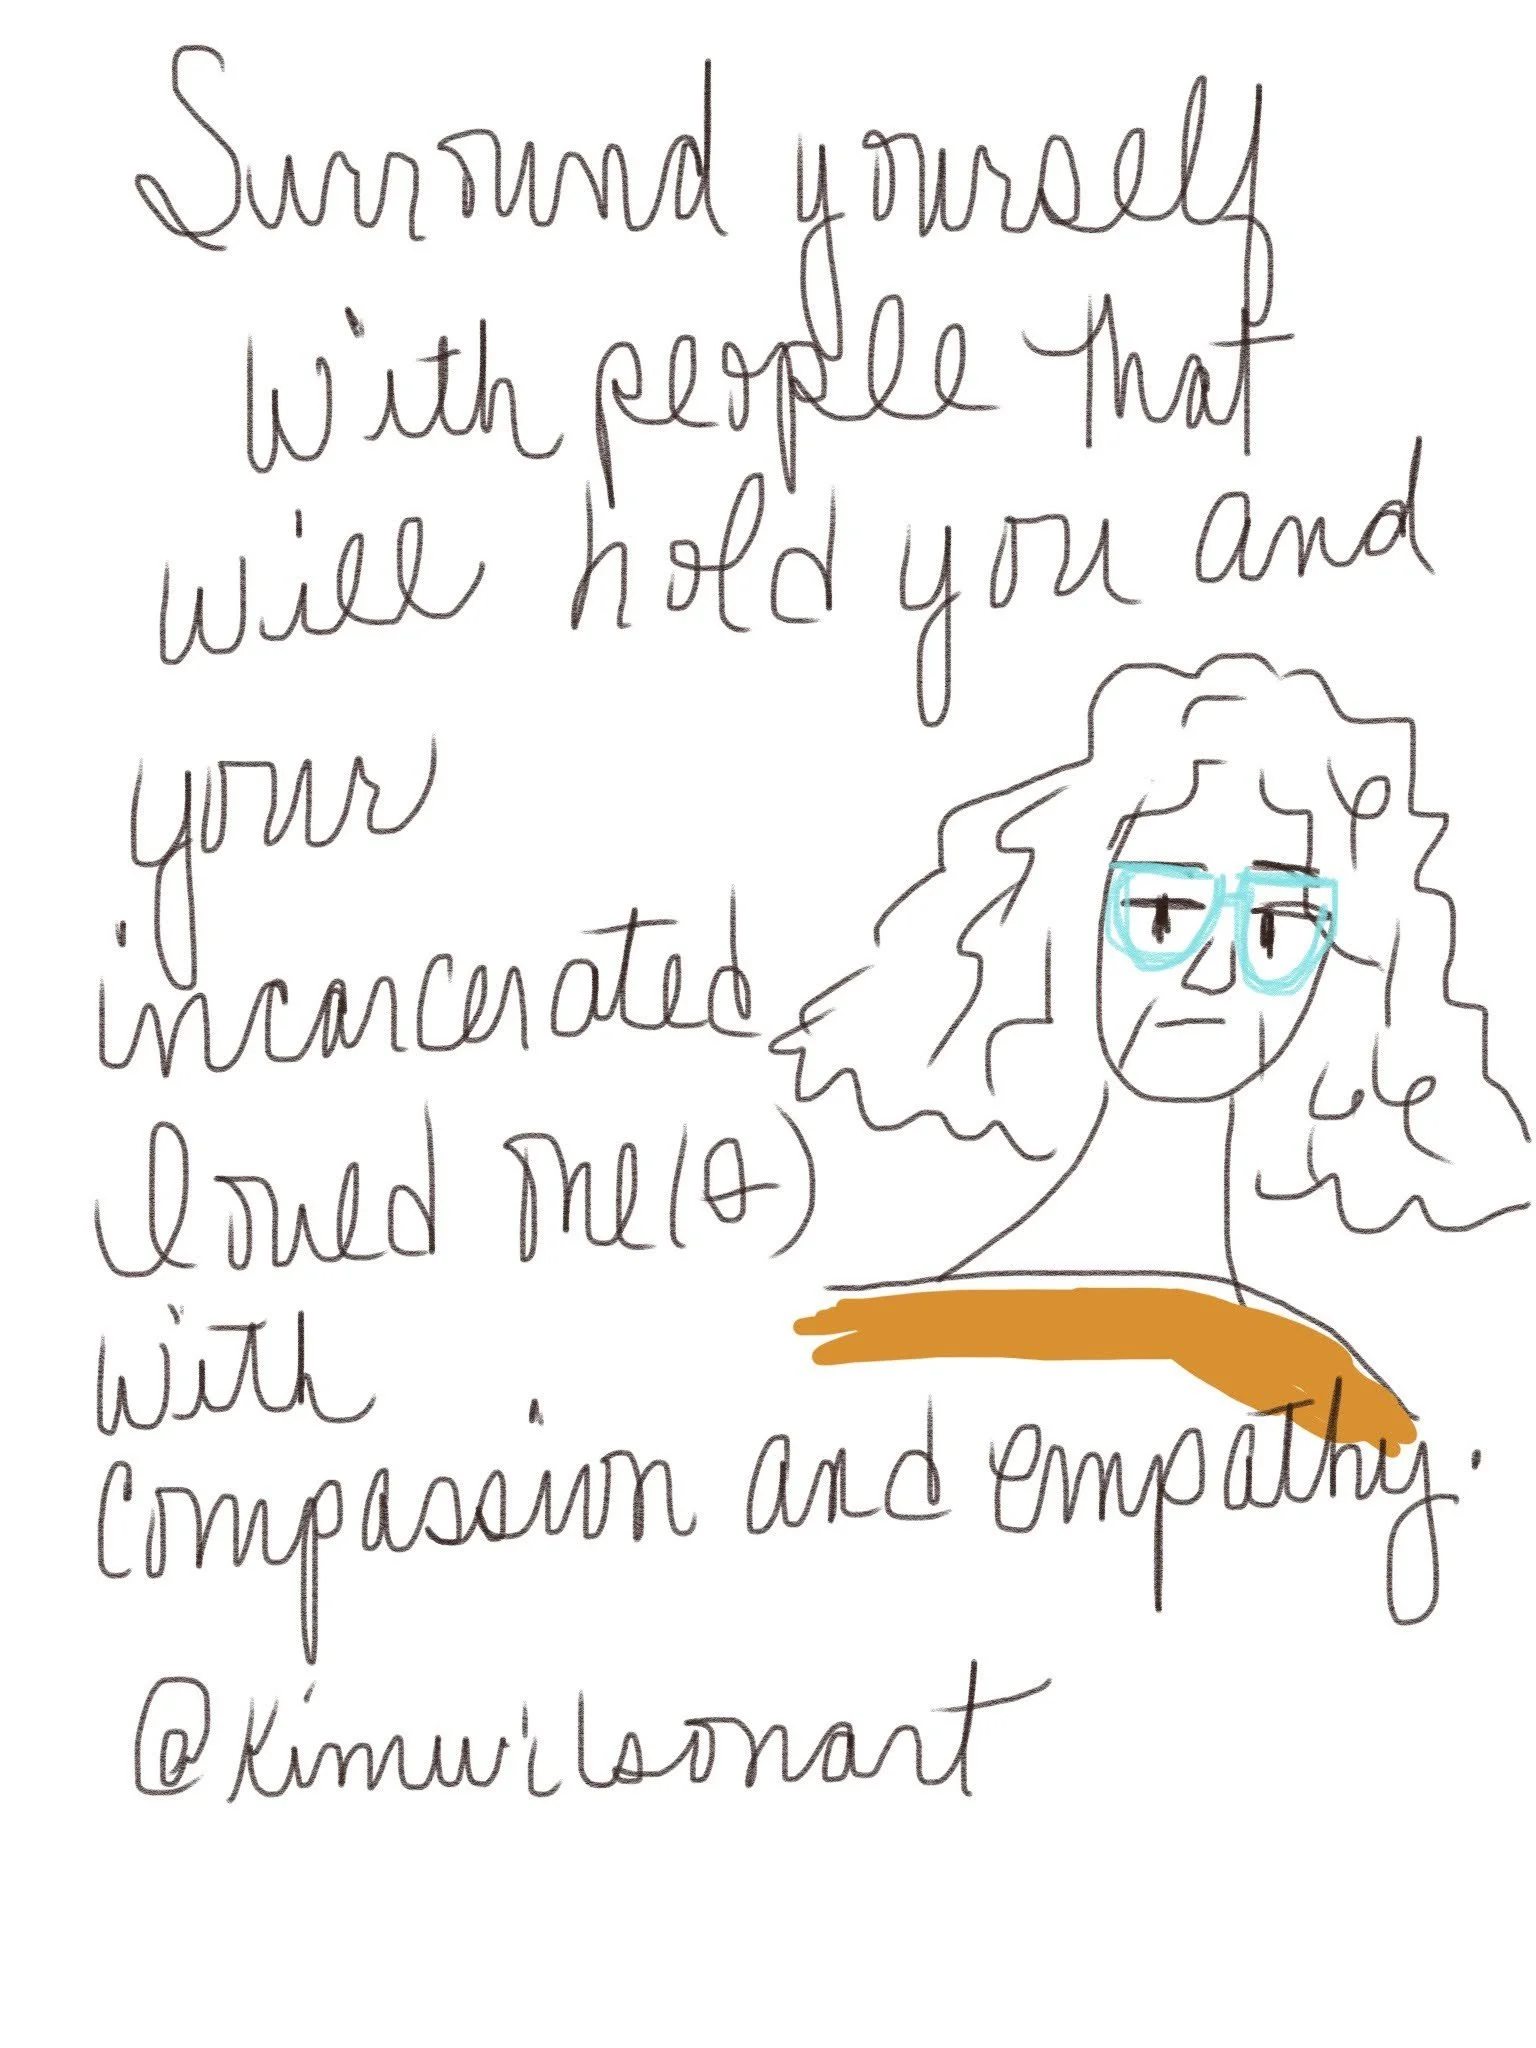 Surround yourself
with people that
will hold you and
your
incarcerated
loved one(s)
with
compassion and empathy.
@kimwilsonart